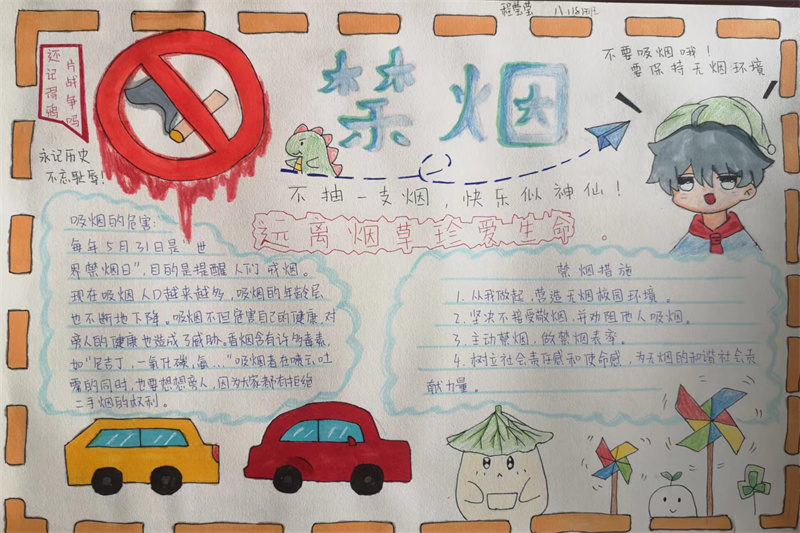 程莹莹 八.1班
还记得鸦
片战争吗
永记历史
不忘耻辱!
禁烟
不要吸烟哦!
要保持无烟环境
不抽一支烟,快乐似神仙!
远离烟草珍爱生命。
吸烟的危害:
每年5月31日是"世
界禁烟日",目的是提醒人们戒烟。
现在吸烟人口越来越多,吸烟的年龄层
也不断地下降。吸烟不但危害自己的健康,对
旁人的健康也造成了威胁。香烟含有许多毒素,
如"尼古丁,一氧化碳,氨..."吸烟者在喷云吐
雾的同时,也要想想旁人,因为大家都有拒绝
二手烟的权利。
禁烟措施
1.从我做起,营造无烟校园环境。
2.坚决不接受敬烟,并劝阻他人吸烟。
3.主动禁烟,做禁烟表率。
4.树立社会责任感和使命感,为无烟的和谐社会贡
献力量。